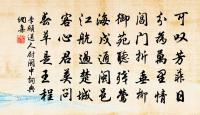 可叹芳菲日
分為萬里情
閶門折垂柳
御苑聽殘鶯
海戍通閩邑
江航過楚城
客心君莫問
春草是王程
李頎送人尉閩中詞典
網集